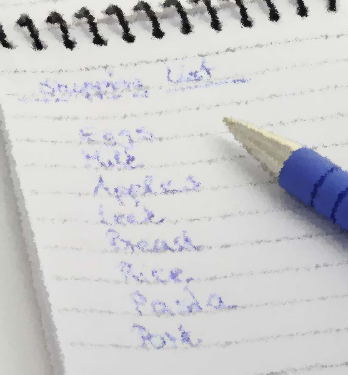 Shopping List
Eggs
Milk
Apples
Leek
Bread
Rice
Pork